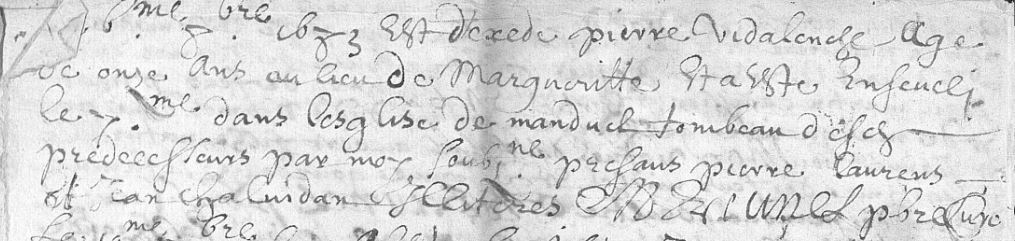 6.me 7.bre 1673 Est dexede pierre vidalenche Age
de onze Ans au lieu de Margueritte Et a Este Ensevely
le 7.me dans lesglise de manduel tombeau de ses
predecesseurs par moy soub.ne presans pierre laurens
et Jean chalvidan Illiteres pbre Cure
me bre